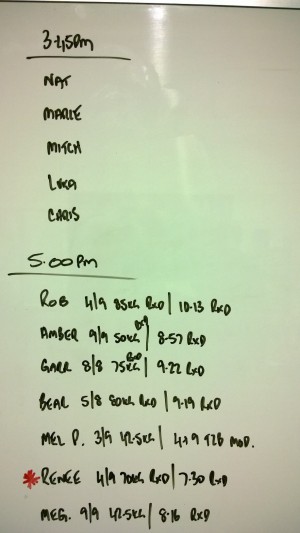 3.45pm
NAT
MARLE
MITCH
LUKA
CARIS
5.00pm
ROB 4/9 85KG RXD | 10.13 RXD
AMBER 9/9 50KG RXD | 8-57 RXD
GARR 8/8 75KG RXD | 9.22 RXD
BEAR 5/8 80KG RXD | 9.19 RXD
MEL D. 3/9 42.5KG | MOD.
*RENEE 4/9 70KG RXD | 7.30 RXD
MEG. 9/9 42.5KG | 8.16 RXD